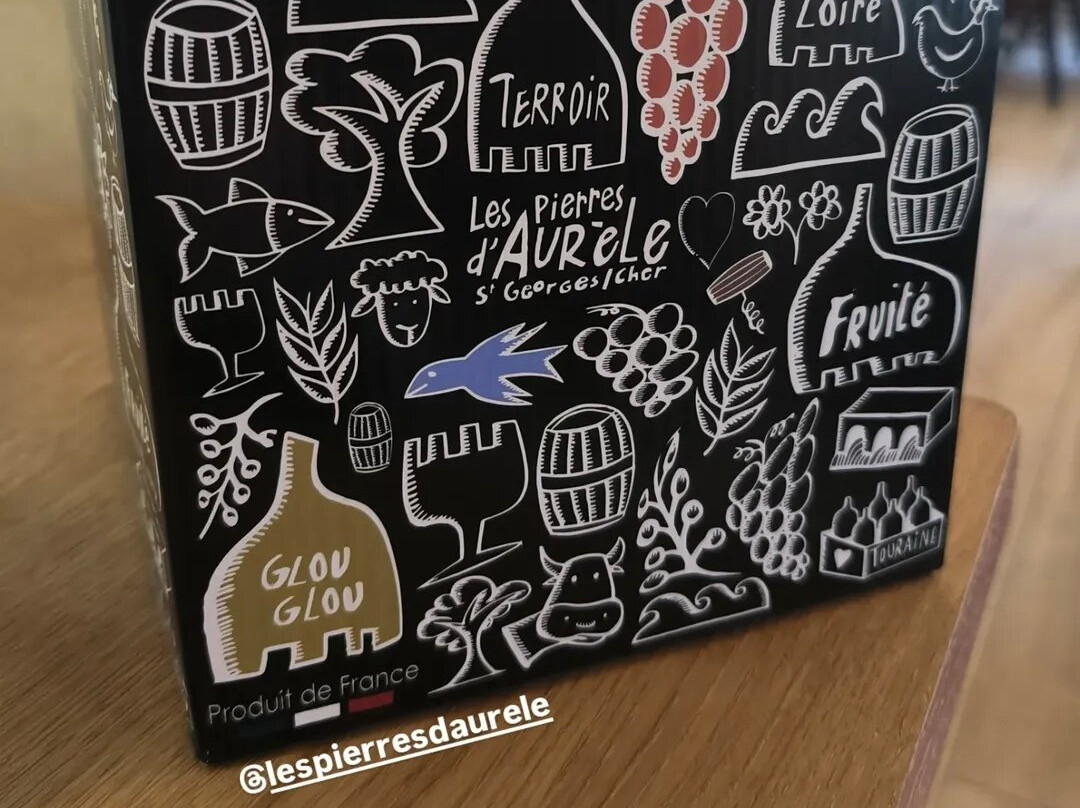 LOiRe
TERROiR
Les Pierres
d'AURèLe
St Georges/Cher
FRUiTé
TOURAiNE
GLOU
GLOU
Produit de France
@lespierresdaurele